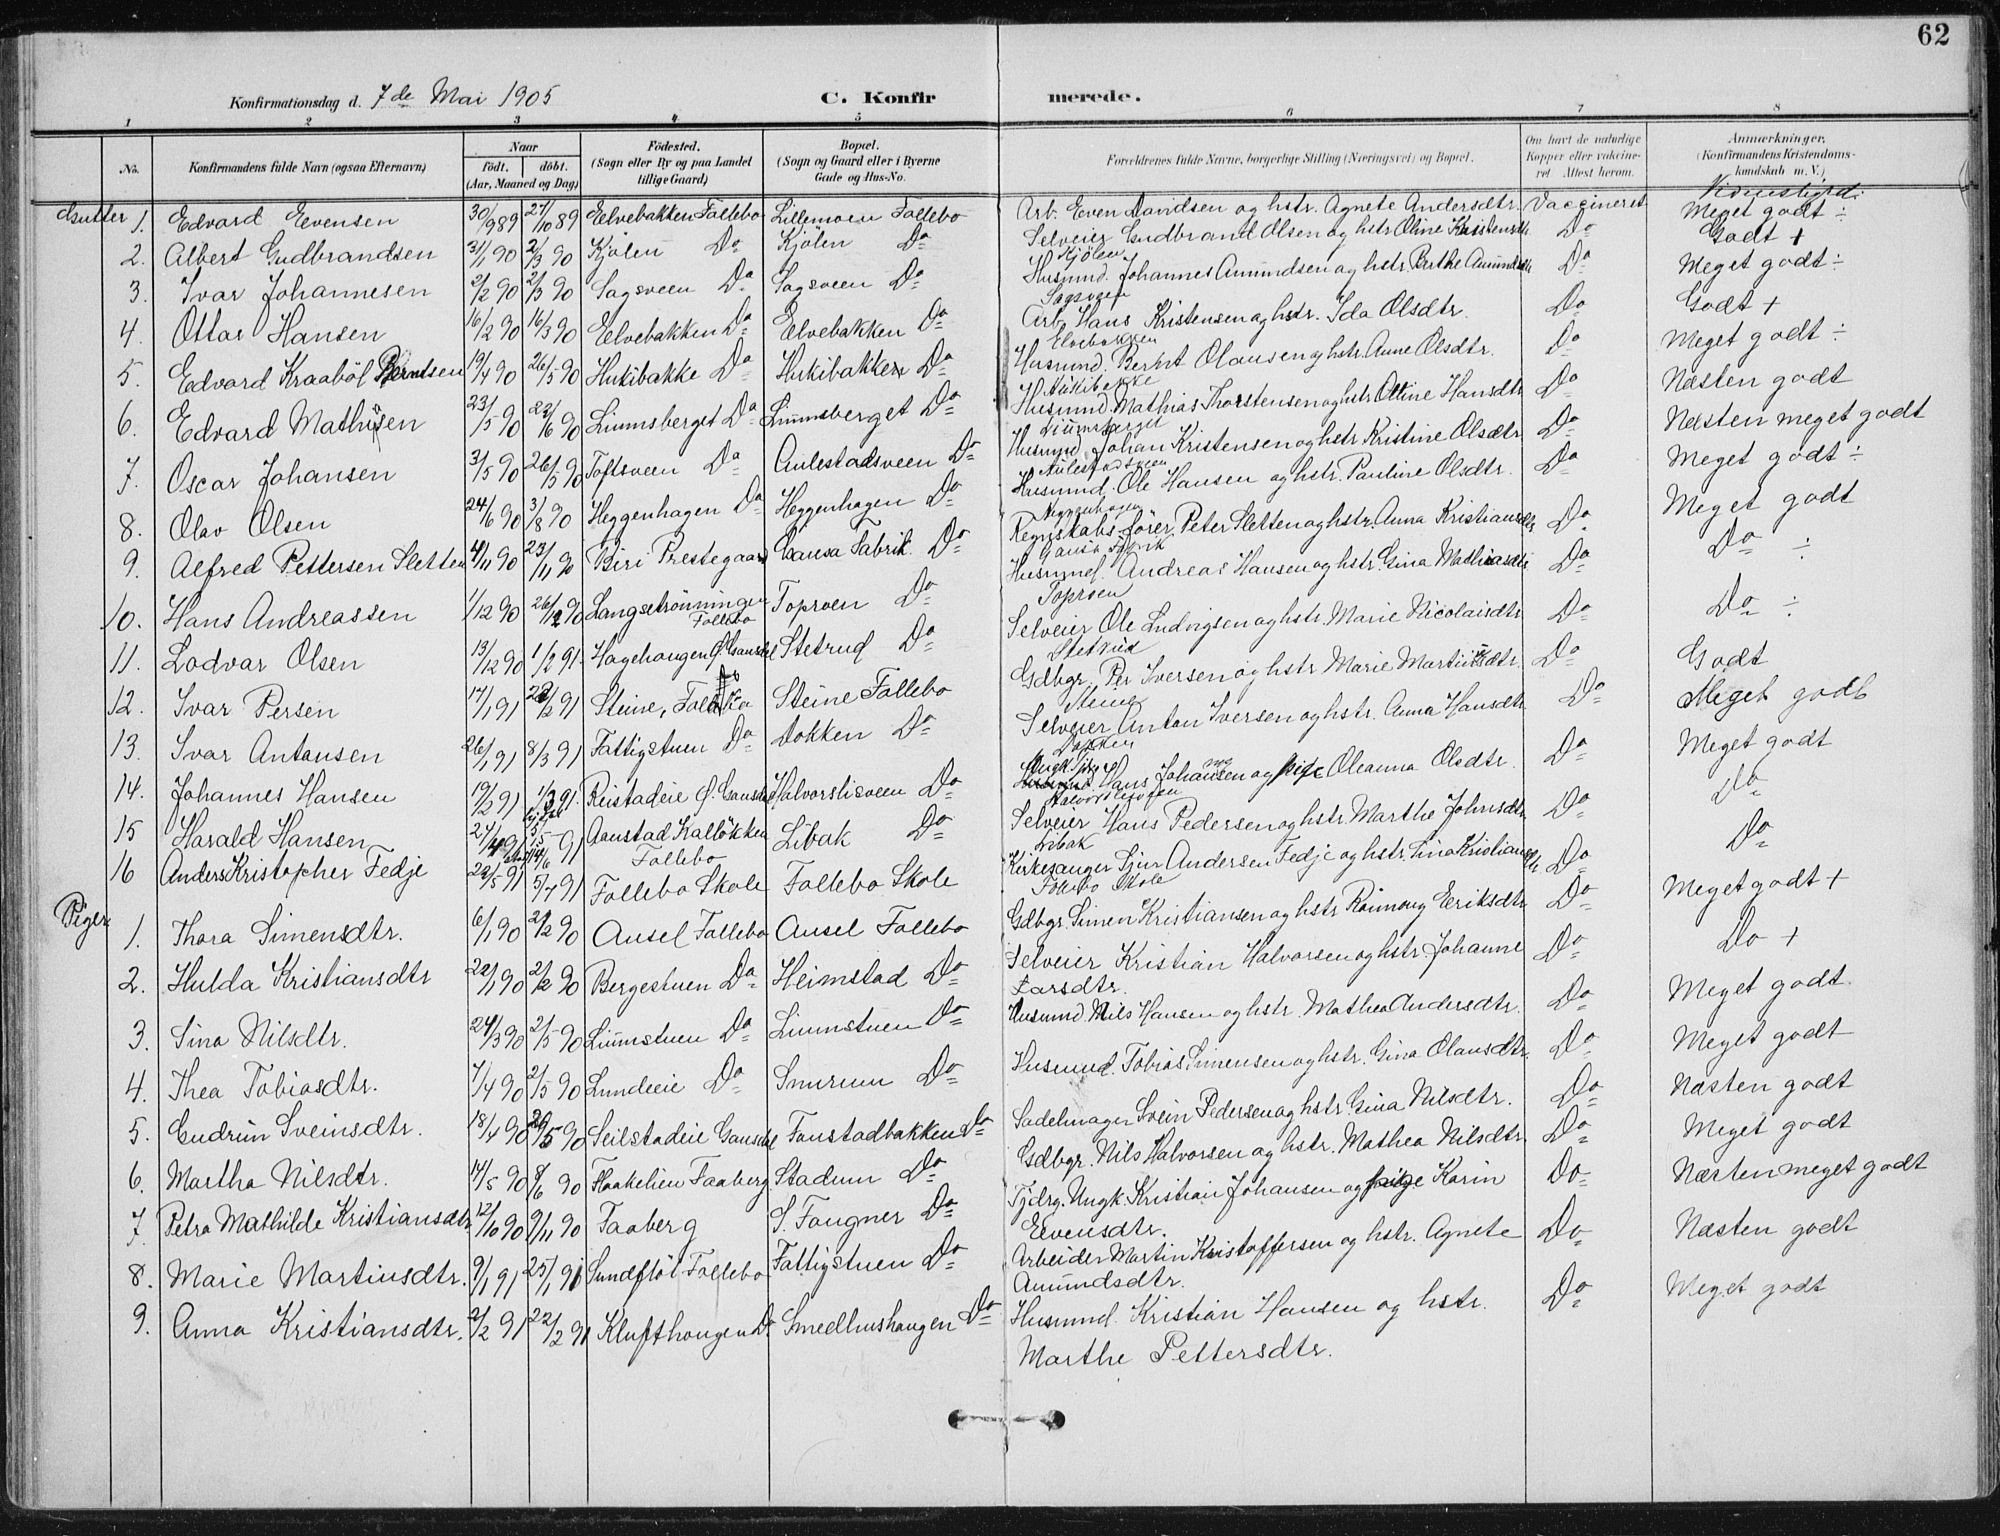 62
Konfirmationsdag d. 7de Mai 1905 C. Konfirmerede.
1 2 3 4 5 6 7 8
No. Konfirmandens fulde Navn (ogsaa Efternavn) Naar født. døbt. (Aar, Maaned og Dag) Fødested. (Sogn eller By og paa Landet tillige Gaard) Bopæl. (Sogn og Gaard eller i Byerne Gade og Hus-No. Forældrenes fulde Navne, borgerlige Stilling (Næringsvei) og Bopæl. Om havt de naturlige Kopper eller vakcineret. Attest herom. Anmærkninger. (Konfirmandens Kristendomskundskab m. V.)
Gutter 1. Edvard Evensen 30/9 89 27/10 89 Eelvebakken Follebo Lillemoen Follebo Arb. Even Davidsen og hstr. Agnete Andersdtr. Vaccineret Meget godt ÷
2. Albert Gudbrandsen 31/1 90 2/3 90 Kjölen Do Kjölen Do Selveier Gudbrand Olsen og hstr Oline Kristensdtr Kjölen Do Godt +
3. Ivar Johannesen 2/2 90 2/3 90 Sagsveen Do Sagsveen Do Husmnd. Johannes Amundsen og hstr. Berthe Amundsdtr Sagsveen Do Meget godt ÷
4. Ottar Hansen 16/2 90 16/3 90 Eelvebakken Do Eelvebakken Do Arb. Hans Kristensen og hstr. Ida Olsdtr. Elvebakken Do Godt +
5. Edvard Kraaböl Berntsen 19/4 90 26/5 90 Hukibakke Do Hukibakken Do Husmnd. Bernt Olausen og hstr. Anne Olsdtr. Hukibakke Do Meget godt ÷
6. Edvard Mathisen 23/5 90 22/6 90 Liumsberget Do Liumsberget Do Husmnd. Mathias Thorstensen og hstr. Oline Hansdtr Liumsberget Do Næsten godt
7. Oscar Johansen 3/5 90 26/5 90 Toftsveen Do Aulestadsveen Do Husmnd Johan Kristensen og hstr. Kristine Olsdtr. Aulestadsveen Do Næsten meget godt
8. Olav Olsen 24/6 90 3/8 90 Heggenhagen Do Heggenhagen Do Husmnd. Ole Hansen og hstr. Pauline Olsdtr. Heggenhagen Do Meget godt ÷
9. Alfred Pettersen Sletten 4/11 90 23/11 90 Biri Prestegaard Gausa Fabrik. Do Regnskabsfører Peter Sletten og hstr. Anna Kristiansdtr. Gausa Fabrik Do Meget godt
10. Hans Andreassen 1/12 90 26/12 90 Langsetrönningen Follebo Toproen Do Husmnd. Andreas Hansen og hstr. Gina Mathiasdtr Toproen Do Do ÷
11. Lodvar Olsen 13/12 90 1/2 91. Hagehaugen Ø. Gausdal Stetrud Do Selveier Ole Ludvigsen og hstr. Marie Nicolaisdtr Stetrud Do Do ÷
12. Ivar Persen 17/1 91 22/2 91 Steine, Follebo Steine Follebo Gdbgr. Per Iversen og hstr Marie Martinsdtr. Steine Do Godt
13. Ivar Antonsen 26/1 91 8/3 91 Fattigstuen Do Dokken Do Selveier Anton Iversen og hstr. Anna Hansdtr Dokken Do Meget godt
14. Johannes Hansen 19/2 91 Reistadeie Ø. Gausdal Halvorslisveen Do Hans Johansen og pige Oleanna Olsdtr. Do Meget godt
15 Harald Hansen 27/4 91 Aanstad Kalløkken Follebo Libak Do Selveier Hans Pedersen og hstr Marthe Johnsdtr Libak Do Do
16 Anders Kristopher Fedje 22/5 91 5/7 91 Follebo Skole Follebo Skole Kirkesanger Sjur Andersen Fedje og hstr. Sina Kristiansdtr. Follebo Skole Do Do
Piger 1. Thora Simensdtr. 6/1 90 2/2 90 Ausel Follebo Ausel Follebo Gdbgr. Simen Kristiansen og hstr Rönnoug Eriksdtr Do Meget godt +
2. Hulda Kristiansdtr 22/1 90 2/2 90 Bergestuen Do Heimstad Do Selveier Kristian Halvorsen og hstr. Johanne Larsdtr. Do Do +
3. Sina Nilsdtr. 24/3 90 2/5 90 Liumstuen Do Liumstuen Do Husmnd. Nils Hansen og hstr. Mathea Andersdtr. Do Meget godt
4. Thea Tobiasdtr. 7/4 90 2/5 90 Lundeeie Do Smurum Do Husmnd. Tobias Simensen og hstr. Gina Olausdtr. Do Meget godt
5. Gudrun Sveinsdtr. 18/4 90 26/5 90 Seilstadeie Gausdal Faustadbakken Do Sadelmager Svein Pedersen og hstr Gina Nilsdtr. Do Næsten godt
6. Martha Nilsdtr. 17/5 90 8/6 90 Haakelien Faaberg Stadum Do Gdbgr. Nils Halvorsen og hstr. Mathea Nilsdtr. Do Meget godt
7. Petra Mathilde Kristiansdtr 12/10 90 9/11 90 Faaberg S. Fougner Do Tjdrg. Ungk. Kristian Johansen og pige Karin Eevensdtr. Do Næsten meget godt
8. Marie Martinsdtr. 9/1 91 25/1 91 Sundflöt Follebo Fattigstuen Do Arbeider Martin Kristoffersen og hstr. Agnete Amundsdtr. Do Næsten godt
9. Anna Kristiansdtr. 2/2 91 22/2 91 Klufthougen Do Smedhushaugen Do Husmnd. Kristian Hansen og hstr. Marthe Pettersdtr. Do Meget godt